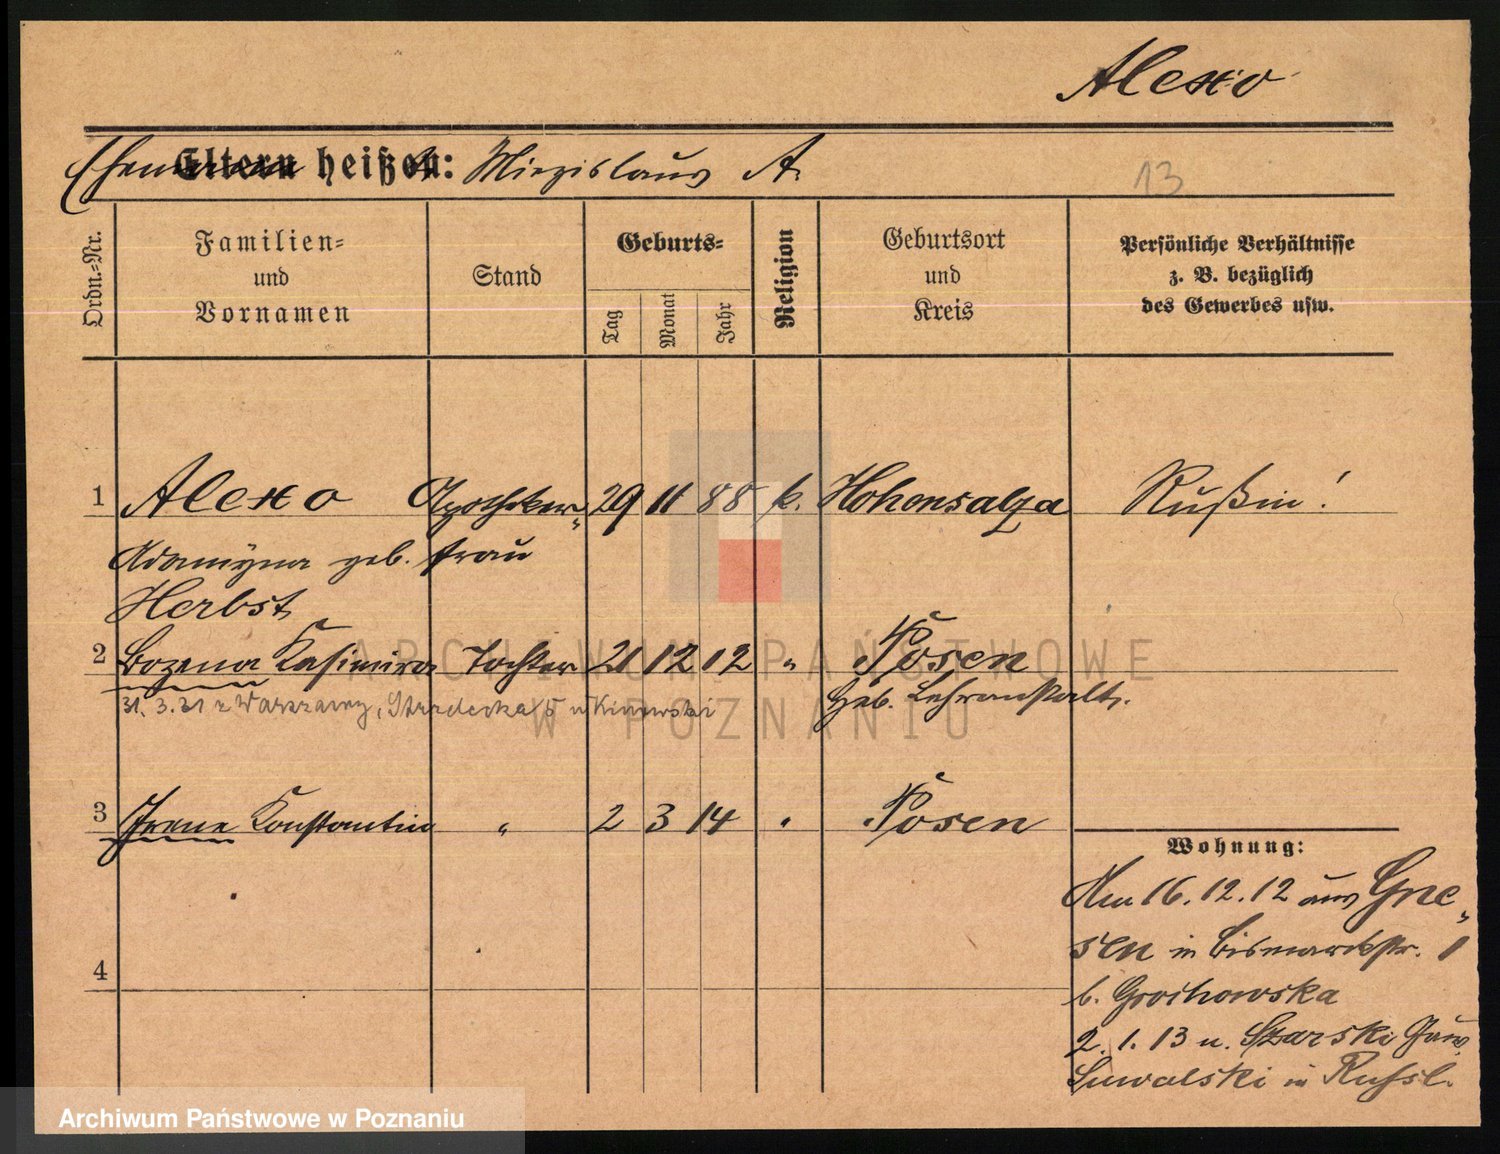 Alexo
Eltern heißen: Miezislaus A.
13
Ordn.-Nr.
Familien-
und
Vornamen
Stand
Geburts-
Tag
Monat
Jahr
Religion
Geburtsort
und
Kreis
Persönliche Verhältnisse
z. B. bezüglich
des Gewerbes usw.
1 Alexo Apotheker- 29 11 88 k. Hohensalza Rußin!
geb. frau
Herbst
2 Bozena Kasimira Tochter 21 12 12 " Posen
31. 3. 31 z Warszawy, 5
Geb. Lehranstalt.
3 Irene Konstantina " 2 3 14 " Posen
4
Wohnung:
Am 16.12.12 aus Gne-
sen in Bismarckstr. 1
b. Grochowska
2.1.13 n. Gouv.
Suwalski in Russl.
ARCHIWUM PAŃSTWOWE
W POZNANIU
Archiwum Państwowe w Poznaniu